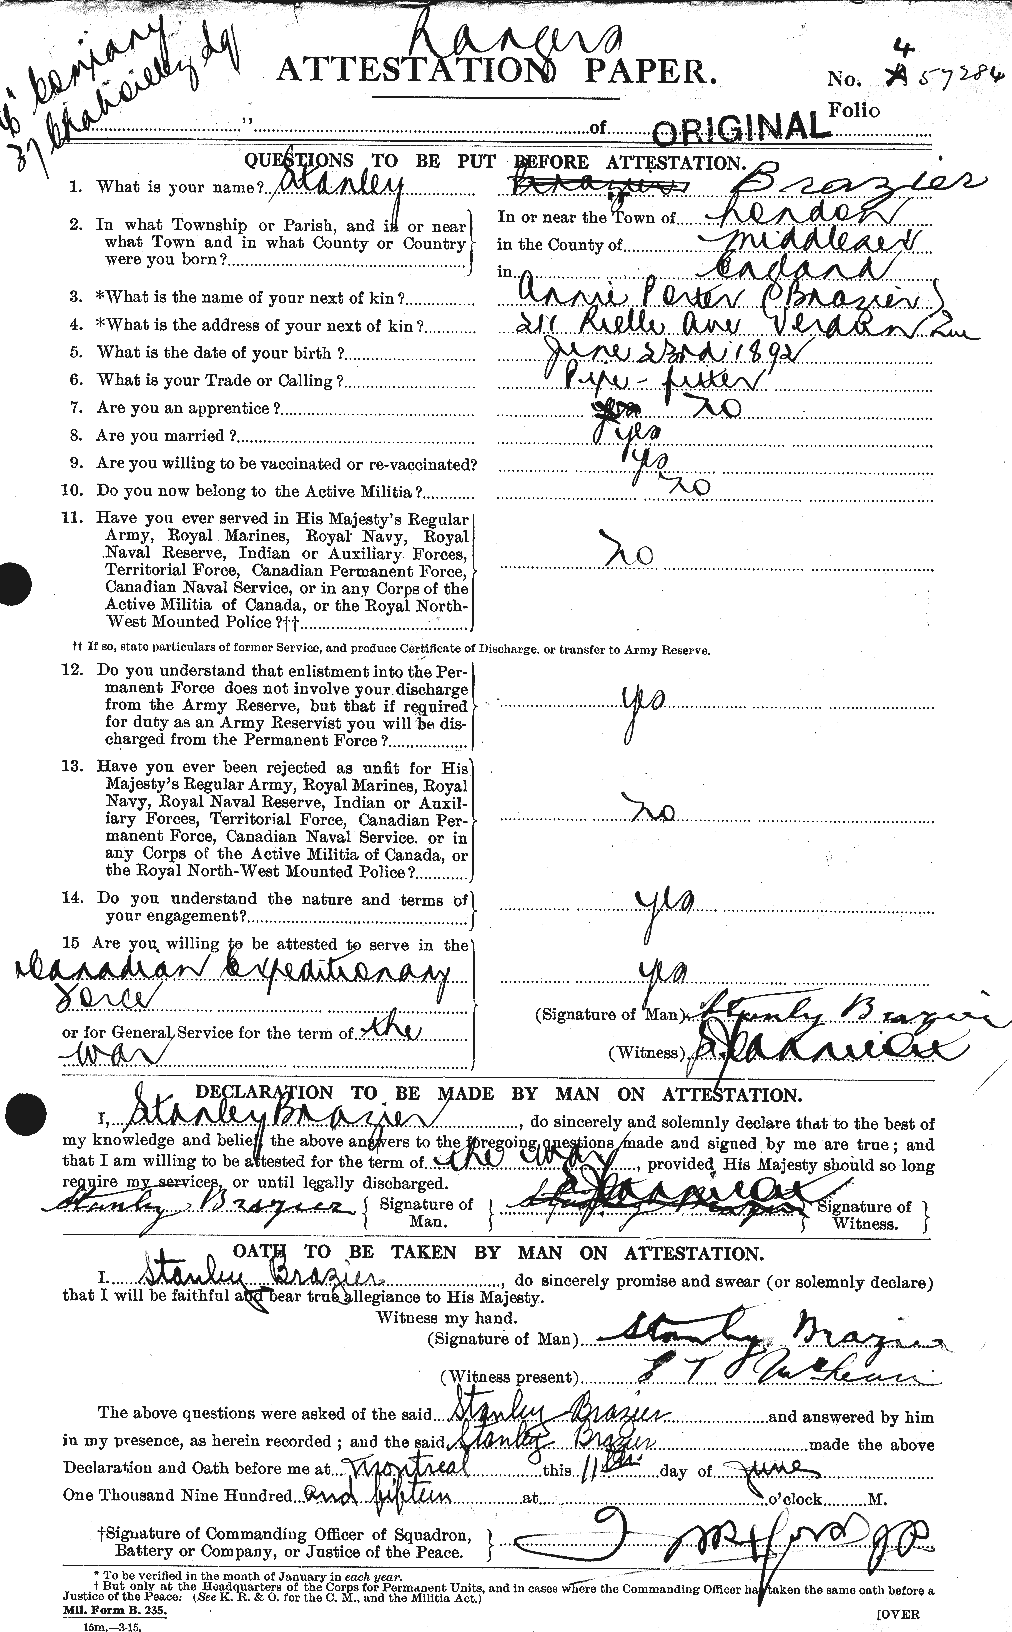 Rangers
ATTESTATION PAPER.
No. 4 57284
Folio
" of ORIGINAL
QUESTIONS TO BE PUT BEFORE ATTESTATION.
1. What is your name? Stanley Brazier
2. In what Township or Parish, and in or near In or near the Town of London
what Town and in what County or Country in the County of Middlesex
were you born? in England
3. *What is the name of your next of kin? Annie Porter (Brazier)
4. *What is the address of your next of kin? 211 Rielle Ave Verdun Que
5. What is the date of your birth? June 23rd 1892
6. What is your Trade or Calling? Pipe-fitter
7. Are you an apprentice? no
8. Are you married? yes
9. Are you willing to be vaccinated or re-vaccinated? yes
10. Do you now belong to the Active Militia? no
11. Have you ever served in His Majesty's Regular
Army, Royal Marines, Royal Navy, Royal
Naval Reserve, Indian or Auxiliary Forces, no
Territorial Force, Canadian Permanent Force,
Canadian Naval Service, or in any Corps of the
Active Militia of Canada, or the Royal North-
West Mounted Police?††
†† If so, state particulars of former Service, and produce Certificate of Discharge, or transfer to Army Reserve.
12. Do you understand that enlistment into the Per-
manent Force does not involve your discharge
from the Army Reserve, but that if required yes
for duty as an Army Reservist you will be dis-
charged from the Permanent Force?
13. Have you ever been rejected as unfit for His
Majesty's Regular Army, Royal Marines, Royal
Navy, Royal Naval Reserve, Indian or Auxil-
iary Forces, Territorial Force, Canadian Per- no
manent Force, Canadian Naval Service. or in
any Corps of the Active Militia of Canada, or
the Royal North-West Mounted Police?
14. Do you understand the nature and terms of yes
your engagement?
15 Are you willing to be attested to serve in the
Canadian Expeditionary yes
Force
(Signature of Man) Stanley Brazier
or for General Service for the term of the
war
(Witness)
DECLARATION TO BE MADE BY MAN ON ATTESTATION.
I, Stanley Brazier, do sincerely and solemnly declare that to the best of
my knowledge and belief the above answers to the foregoing questions made and signed by me are true; and
that I am willing to be attested for the term of the war, provided His Majesty should so long
require my services, or until legally discharged.
Stanley Brazier { Signature of Man. } { Signature of Witness. }
OATH TO BE TAKEN BY MAN ON ATTESTATION.
I. Stanley Brazier, do sincerely promise and swear (or solemnly declare)
that I will be faithful and bear true allegiance to His Majesty.
Witness my hand.
(Signature of Man) Stanley Brazier
(Witness present)
The above questions were asked of the said Stanley Brazier and answered by him
in my presence, as herein recorded; and the said Stanley Brazier made the above
Declaration and Oath before me at Montreal this 11th day of June
One Thousand Nine Hundred and fifteen at o'clock M.
†Signature of Commanding Officer of Squadron,
Battery or Company, or Justice of the Peace. JP
* To be verified in the month of January in each year.
† But only at the Headquarters of the Corps for Permanent Units, and in cases where the Commanding Officer has taken the same oath before a
Justice of the Peace: (See K. R. & O. for the C. M., and the Militia Act.)
Mil. Form B. 235.
15m.—3-15.
[OVER